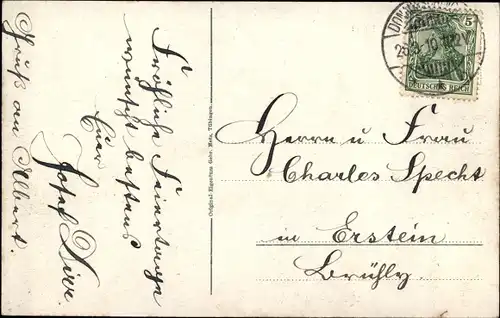 Fröhliche Feiertage
wünscht bestens
Euer
Josef Dirr.
Gruß an Albert.
Original-Eigentum Gebr. Metz, Tübingen.
5
DEUTSCHES REICH
Herrn u Frau
Charles Specht
in Erstein
Brühly.